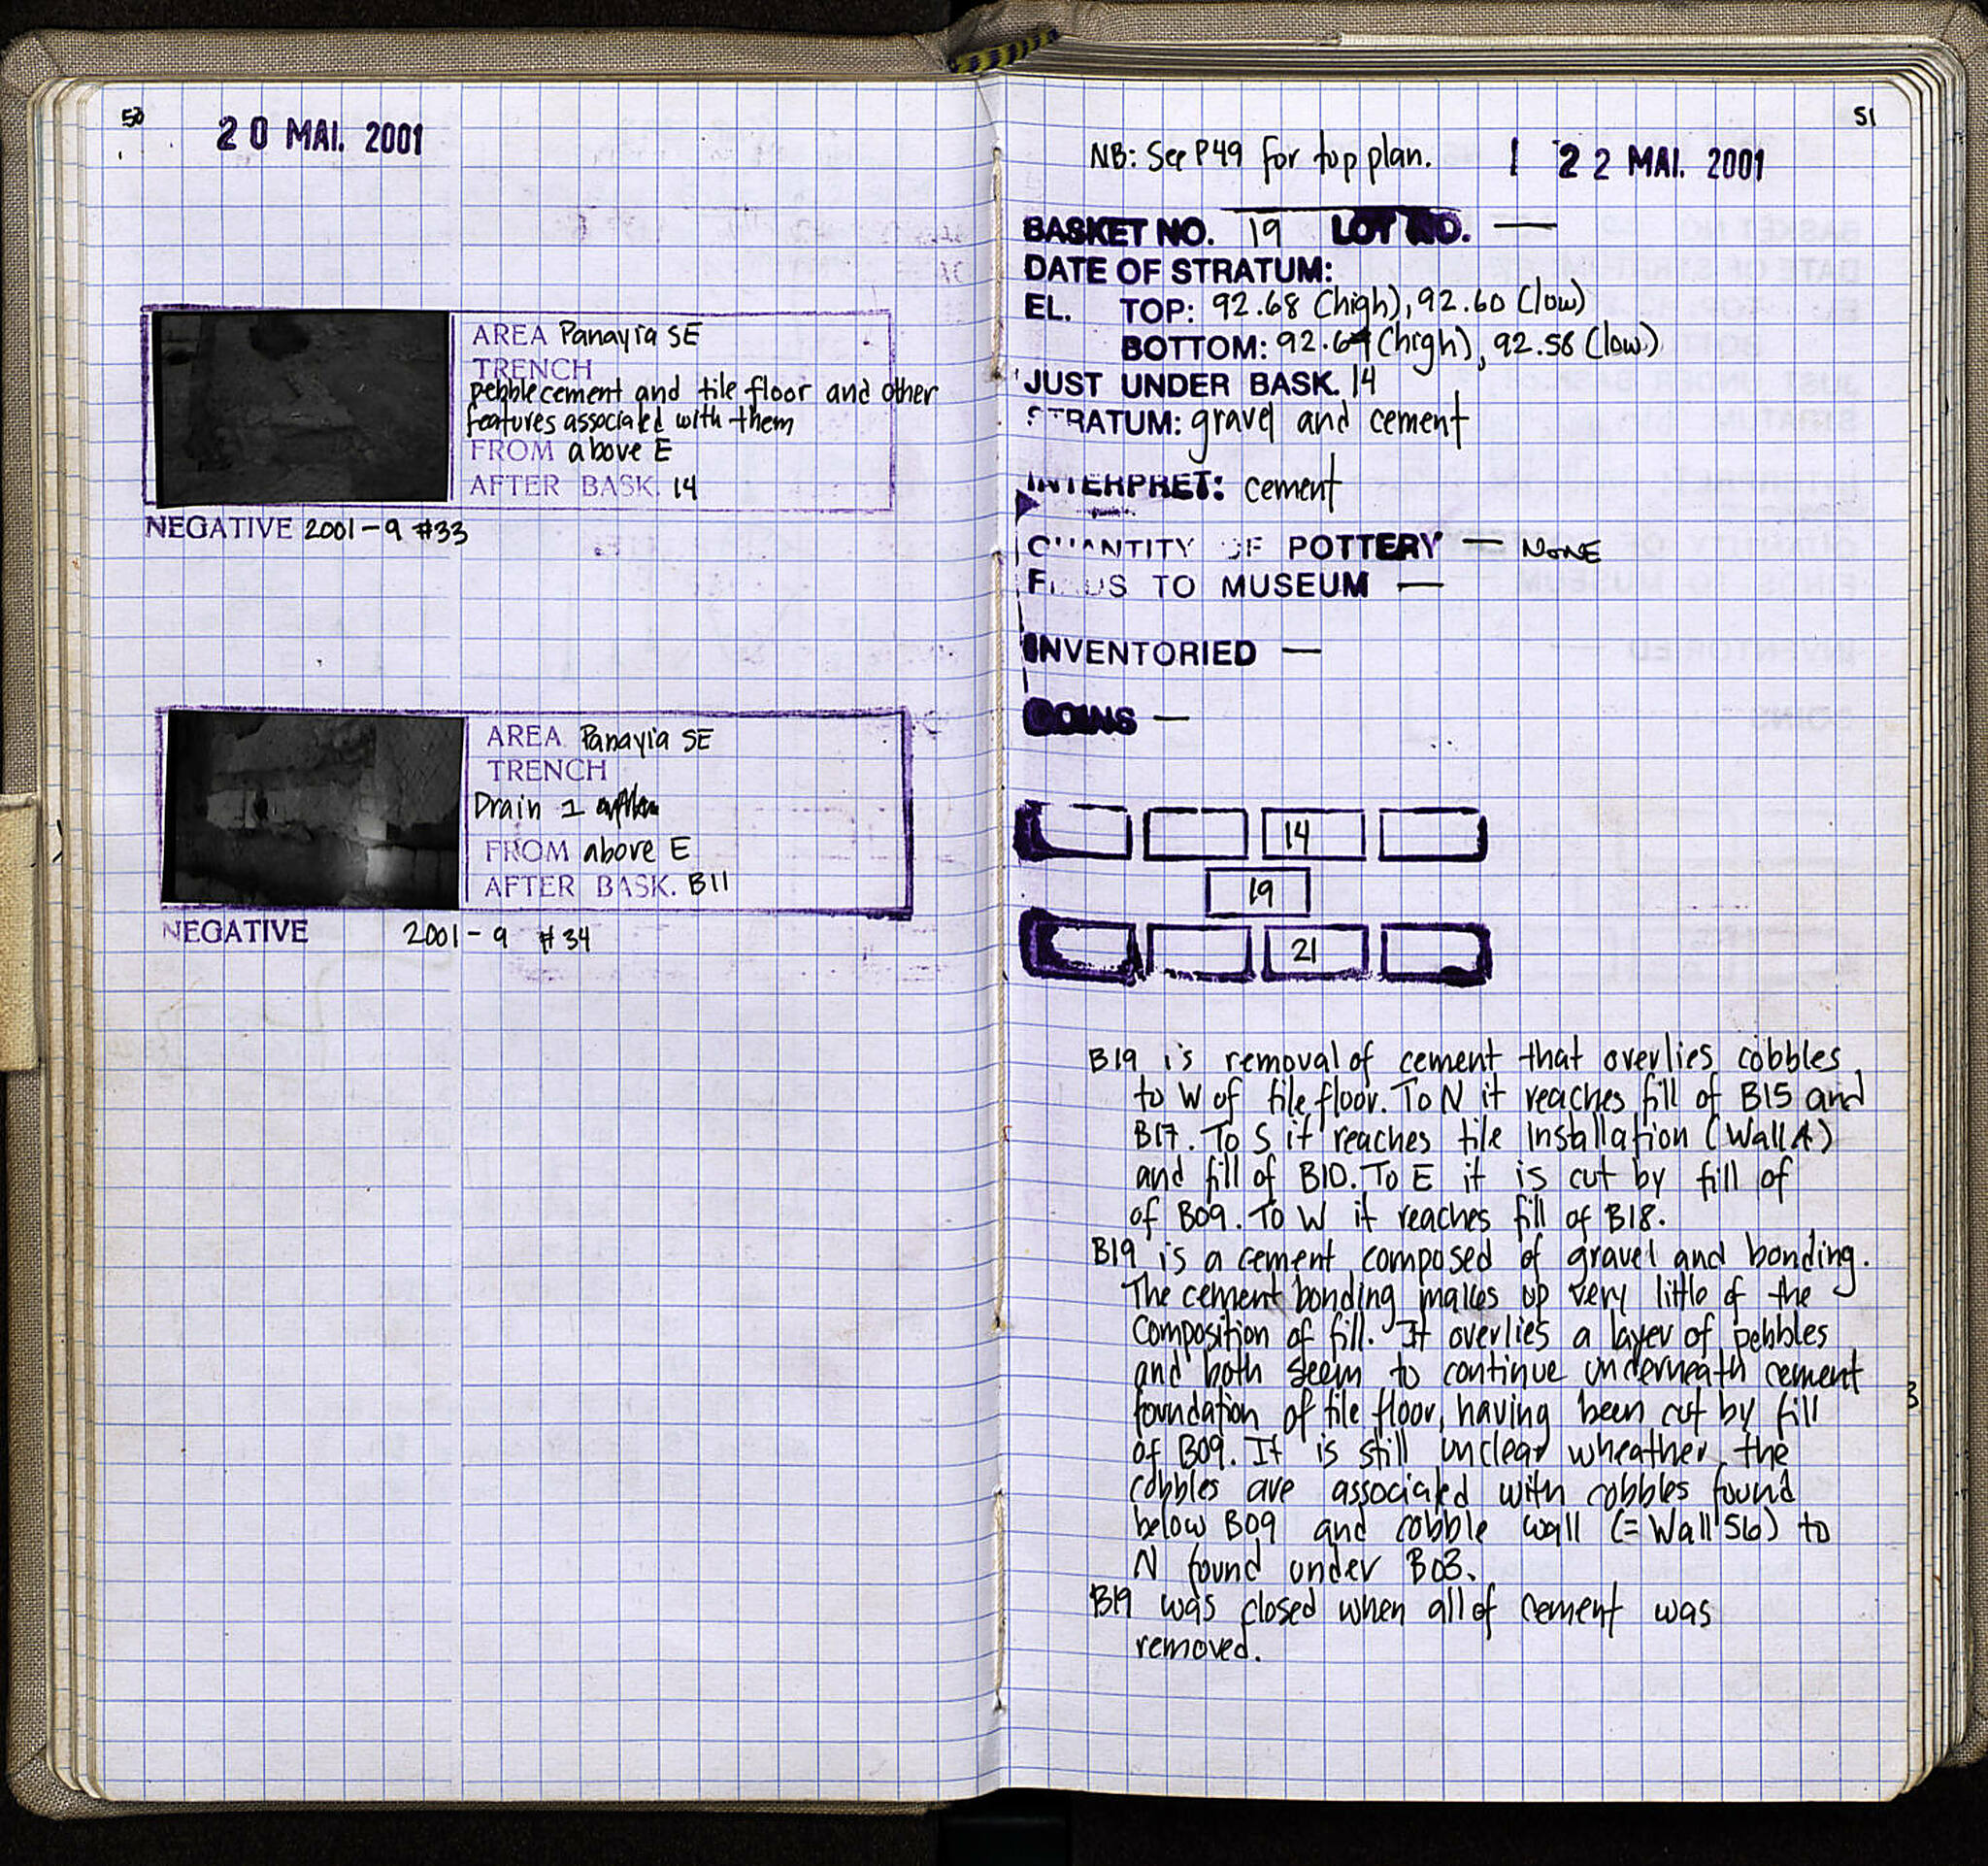 50
20 MAI. 2001
AREA Panayia SE
TRENCH
pebble cement and tile floor and other
features associated with them
FROM above E
AFTER BASK. 14
NEGATIVE 2001-9 #33
AREA Panayia SE
TRENCH
Drain 1
FROM above E
AFTER BASK. B11
NEGATIVE 2001-9 #34
51
NB: See P49 for top plan. 22 MAI. 2001
BASKET NO. 19 LOT NO. —
DATE OF STRATUM:
EL. TOP: 92.68 (high), 92.60 (low)
BOTTOM: (high), 92.58 (low)
JUST UNDER BASK. 14
STRATUM: gravel and cement
INTERPRET: cement
QUANTITY OF POTTERY — NONE
FINDS TO MUSEUM —
INVENTORIED —
COINS —
14
19
21
B19 is removal of cement that overlies cobbles
to W of tile floor. To N it reaches fill of B15 and
B17. To S it reaches tile installation (Wall A)
and fill of B10. To E it is cut by fill of
of B09. To W it reaches fill of B18.
B19 is a cement composed of gravel and bonding.
The cement bonding makes up very little of the
composition of fill. It overlies a layer of pebbles
and both seem to continue underneath cement
foundation of tile floor, having been cut by fill
of B09. It is still unclear wheather the
cobbles are associated with cobbles found
below B09 and cobble wall (= Wall 56) to
N found under B03.
B19 was closed when all of cement was
removed.